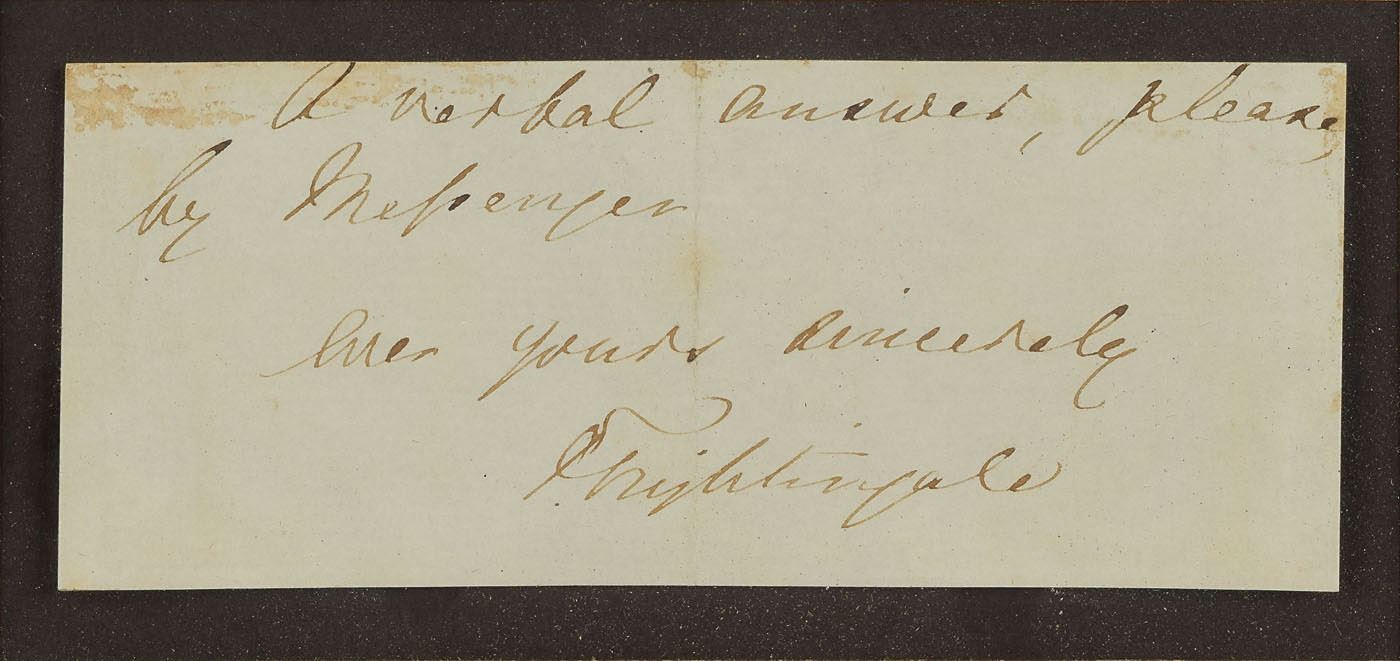 A verbal answer, please,
by Messenger
ever yours sincerely
FNightingale